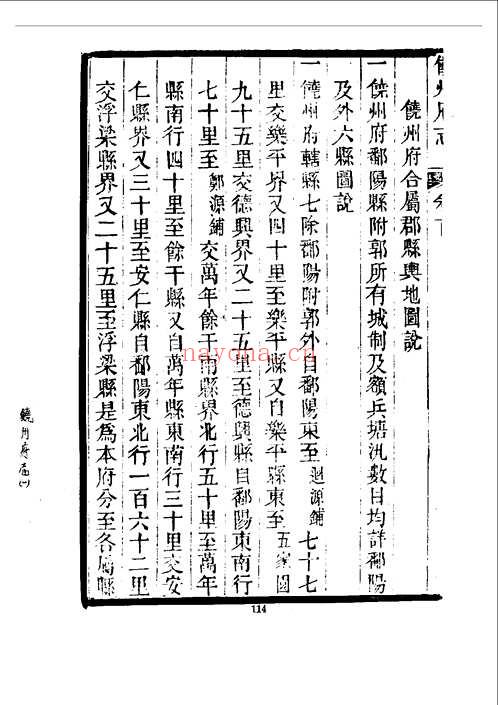 饒州府志
饒州府合屬郡縣輿地圖說
一饒州府鄱陽縣附郭所有城制及額兵塘汛數目均詳鄱陽
及外六縣圖說
一饒州府轄縣七除鄱陽附郭外自鄱陽東至迴源鋪七十七
里交樂平界又四十里至樂平縣又自樂平縣東至五家園
九十五里交德興界又二十五里至德興縣自鄱陽東南行
七十里至鄭源鋪交萬年餘干兩縣界北行五十里至萬年
縣南行四十里至餘干縣又自萬年縣東南行三十里交安
仁縣界又三十里至安仁縣自鄱陽東北行一百六十二里
交浮梁縣界又二十五里至浮梁縣是為本府分至各屬縣
nayona.cn
114